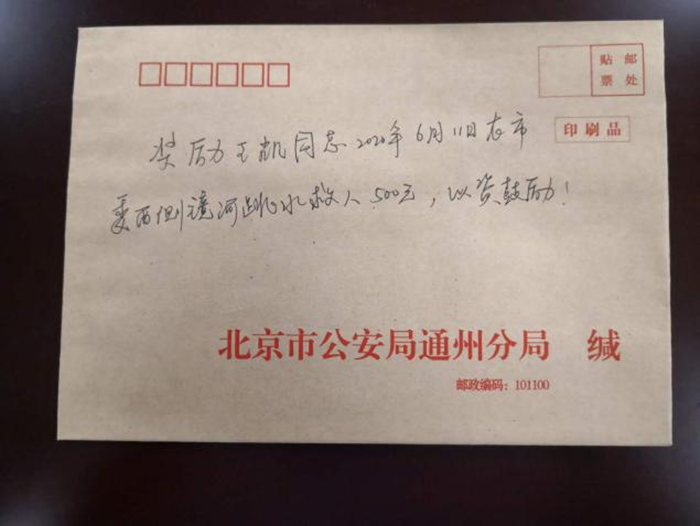 贴 邮
票 处
印刷品
奖励王凯同志2020年6月11日在市
委西侧镜河跳水救人500元，以资鼓励！
北京市公安局通州分局 缄
邮政编码：101100